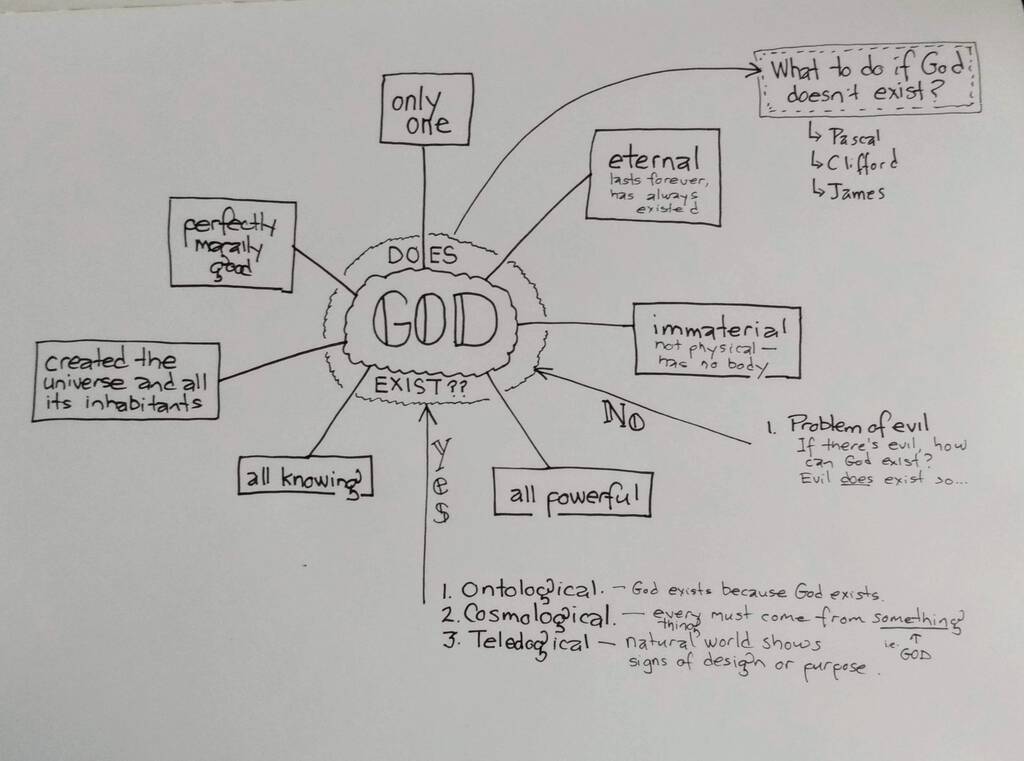 What to do if God
doesn't exist?
↳ Pascal
↳ Clifford
↳ James
only
one
eternal
lasts forever,
has always
existed
perfectly
morally
good
DOES
GOD
EXIST??
immaterial
not physical —
has no body
created the
universe and all
its inhabitants
all knowing
all powerful
Yes
No
1. Problem of evil
If there's evil, how
can God exist?
Evil does exist so...
1. Ontological. — God exists because God exists.
2. Cosmological. — every thing must come from something
i.e. GOD
3. Teleological — natural world shows
signs of design or purpose.